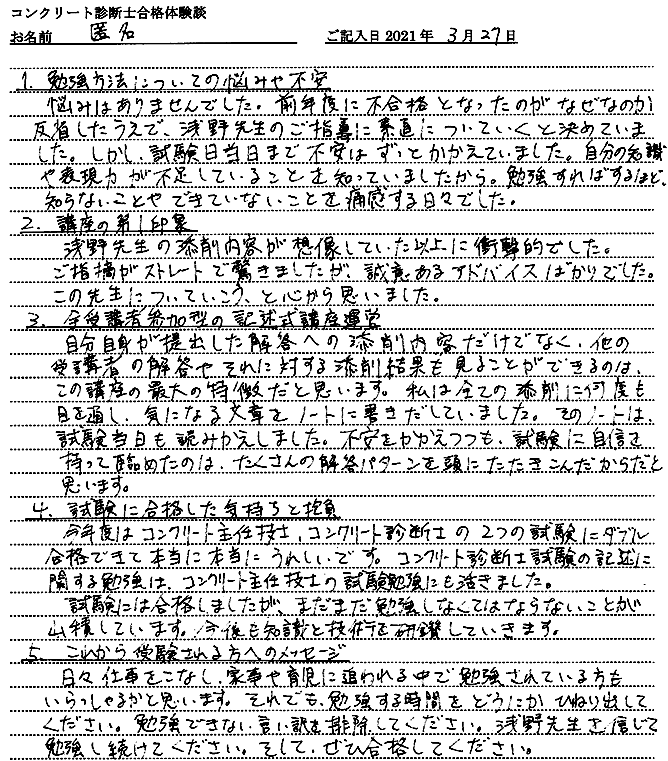 コンクリート診断士合格体験談
お名前 匿名 ご記入日 2021年 3月27日
1. 勉強方法についての悩みや不安
悩みはありませんでした。前年度に不合格となったのがなぜなのか
反省したうえで、浅野先生のご指導に素直についていくと決めていま
した。しかし、試験日当日まで不安はずっとかかえていました。自分の知識
や表現力が不足していることを知っていましたから。勉強すればするほど、
知らないことやできていないことを痛感する日々でした。
2. 講座の第1印象
浅野先生の添削内容が想像していた以上に衝撃的でした。
ご指摘がストレートで驚きましたが、誠意あるアドバイスばかりでした。
この先生についていこう、と心から思いました。
3. 全受講者参加型の記述式講座運営
自分自身が提出した解答への添削内容だけでなく、他の
受講者の解答やそれに対する添削結果も見ることができるのは、
この講座の最大の特徴だと思います。私は全ての添削に何度も
目を通し、気になる文章をノートに書きだしていました。そのノートは、
試験当日も読みかえしました。不安をかかえつつも、試験に自信を
持って臨めたのは、たくさんの解答パターンを頭にたたきこんだからだと
思います。
4. 試験に合格した気持ちと抱負
今年度はコンクリート主任技士、コンクリート診断士の2つの試験にダブル
合格できて本当に本当にうれしいです。コンクリート診断士試験の記述に
関する勉強は、コンクリート主任技士の試験勉強にも活きました。
試験には合格しましたが、まだまだ勉強しなくてはならないことが
山積しています。今後も知識と技術を研鑽していきます。
5. これから受験される方へのメッセージ
日々仕事をこなし、家事や育児に追われる中で勉強されている方も
いらっしゃるかと思います。それでも、勉強する時間をどうにかひねり出して
ください。勉強できない言い訳を排除してください。浅野先生を信じて
勉強し続けてください。そして、ぜひ合格してください。